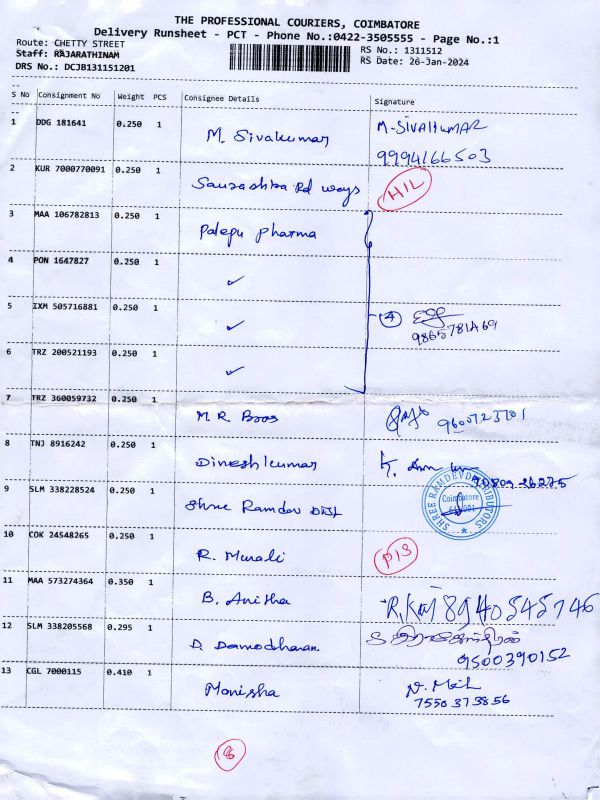 THE PROFESSIONAL COURIERS, COIMBATORE
Delivery Runsheet - PCT - Phone No.:0422-3505555 - Page No.:1
Route: CHETTY STREET
Staff: RAJARATHINAM
DRS No.: DCJB131151201
RS No.: 1311512
RS Date: 26-Jan-2024
S No Consignment No Weight PCS Consignee Details Signature
1 DDG 181641 0.250 1 M. Sivakumar M-SIVAKUMAR
9994166503
2 KUR 7000770091 0.250 1 Saurashtra Rd ways HIL
3 MAA 106782813 0.250 1 Palepu pharma
4 PON 1647827 0.250 1 ✓
5 IXM 505716881 0.250 1 ✓ 4
9865781469
6 TRZ 200521193 0.250 1 ✓
7 TRZ 360059732 0.250 1 M.R. Bros 9600723701
8 TNJ 8916242 0.250 1 Dineshkumar
9 SLM 338228524 0.250 1 Shree Ramdev Dist
SHREE RAMDEV DISTRIBUTORS
Coimbatore
10 COK 24548265 0.250 1 R. Murali
11 MAA 573274364 0.350 1 B. Anitha 8940545746
12 SLM 338205568 0.295 1 D. Damodharan
9500390152
13 CGL 7000115 0.410 1 Monisha
7550373856